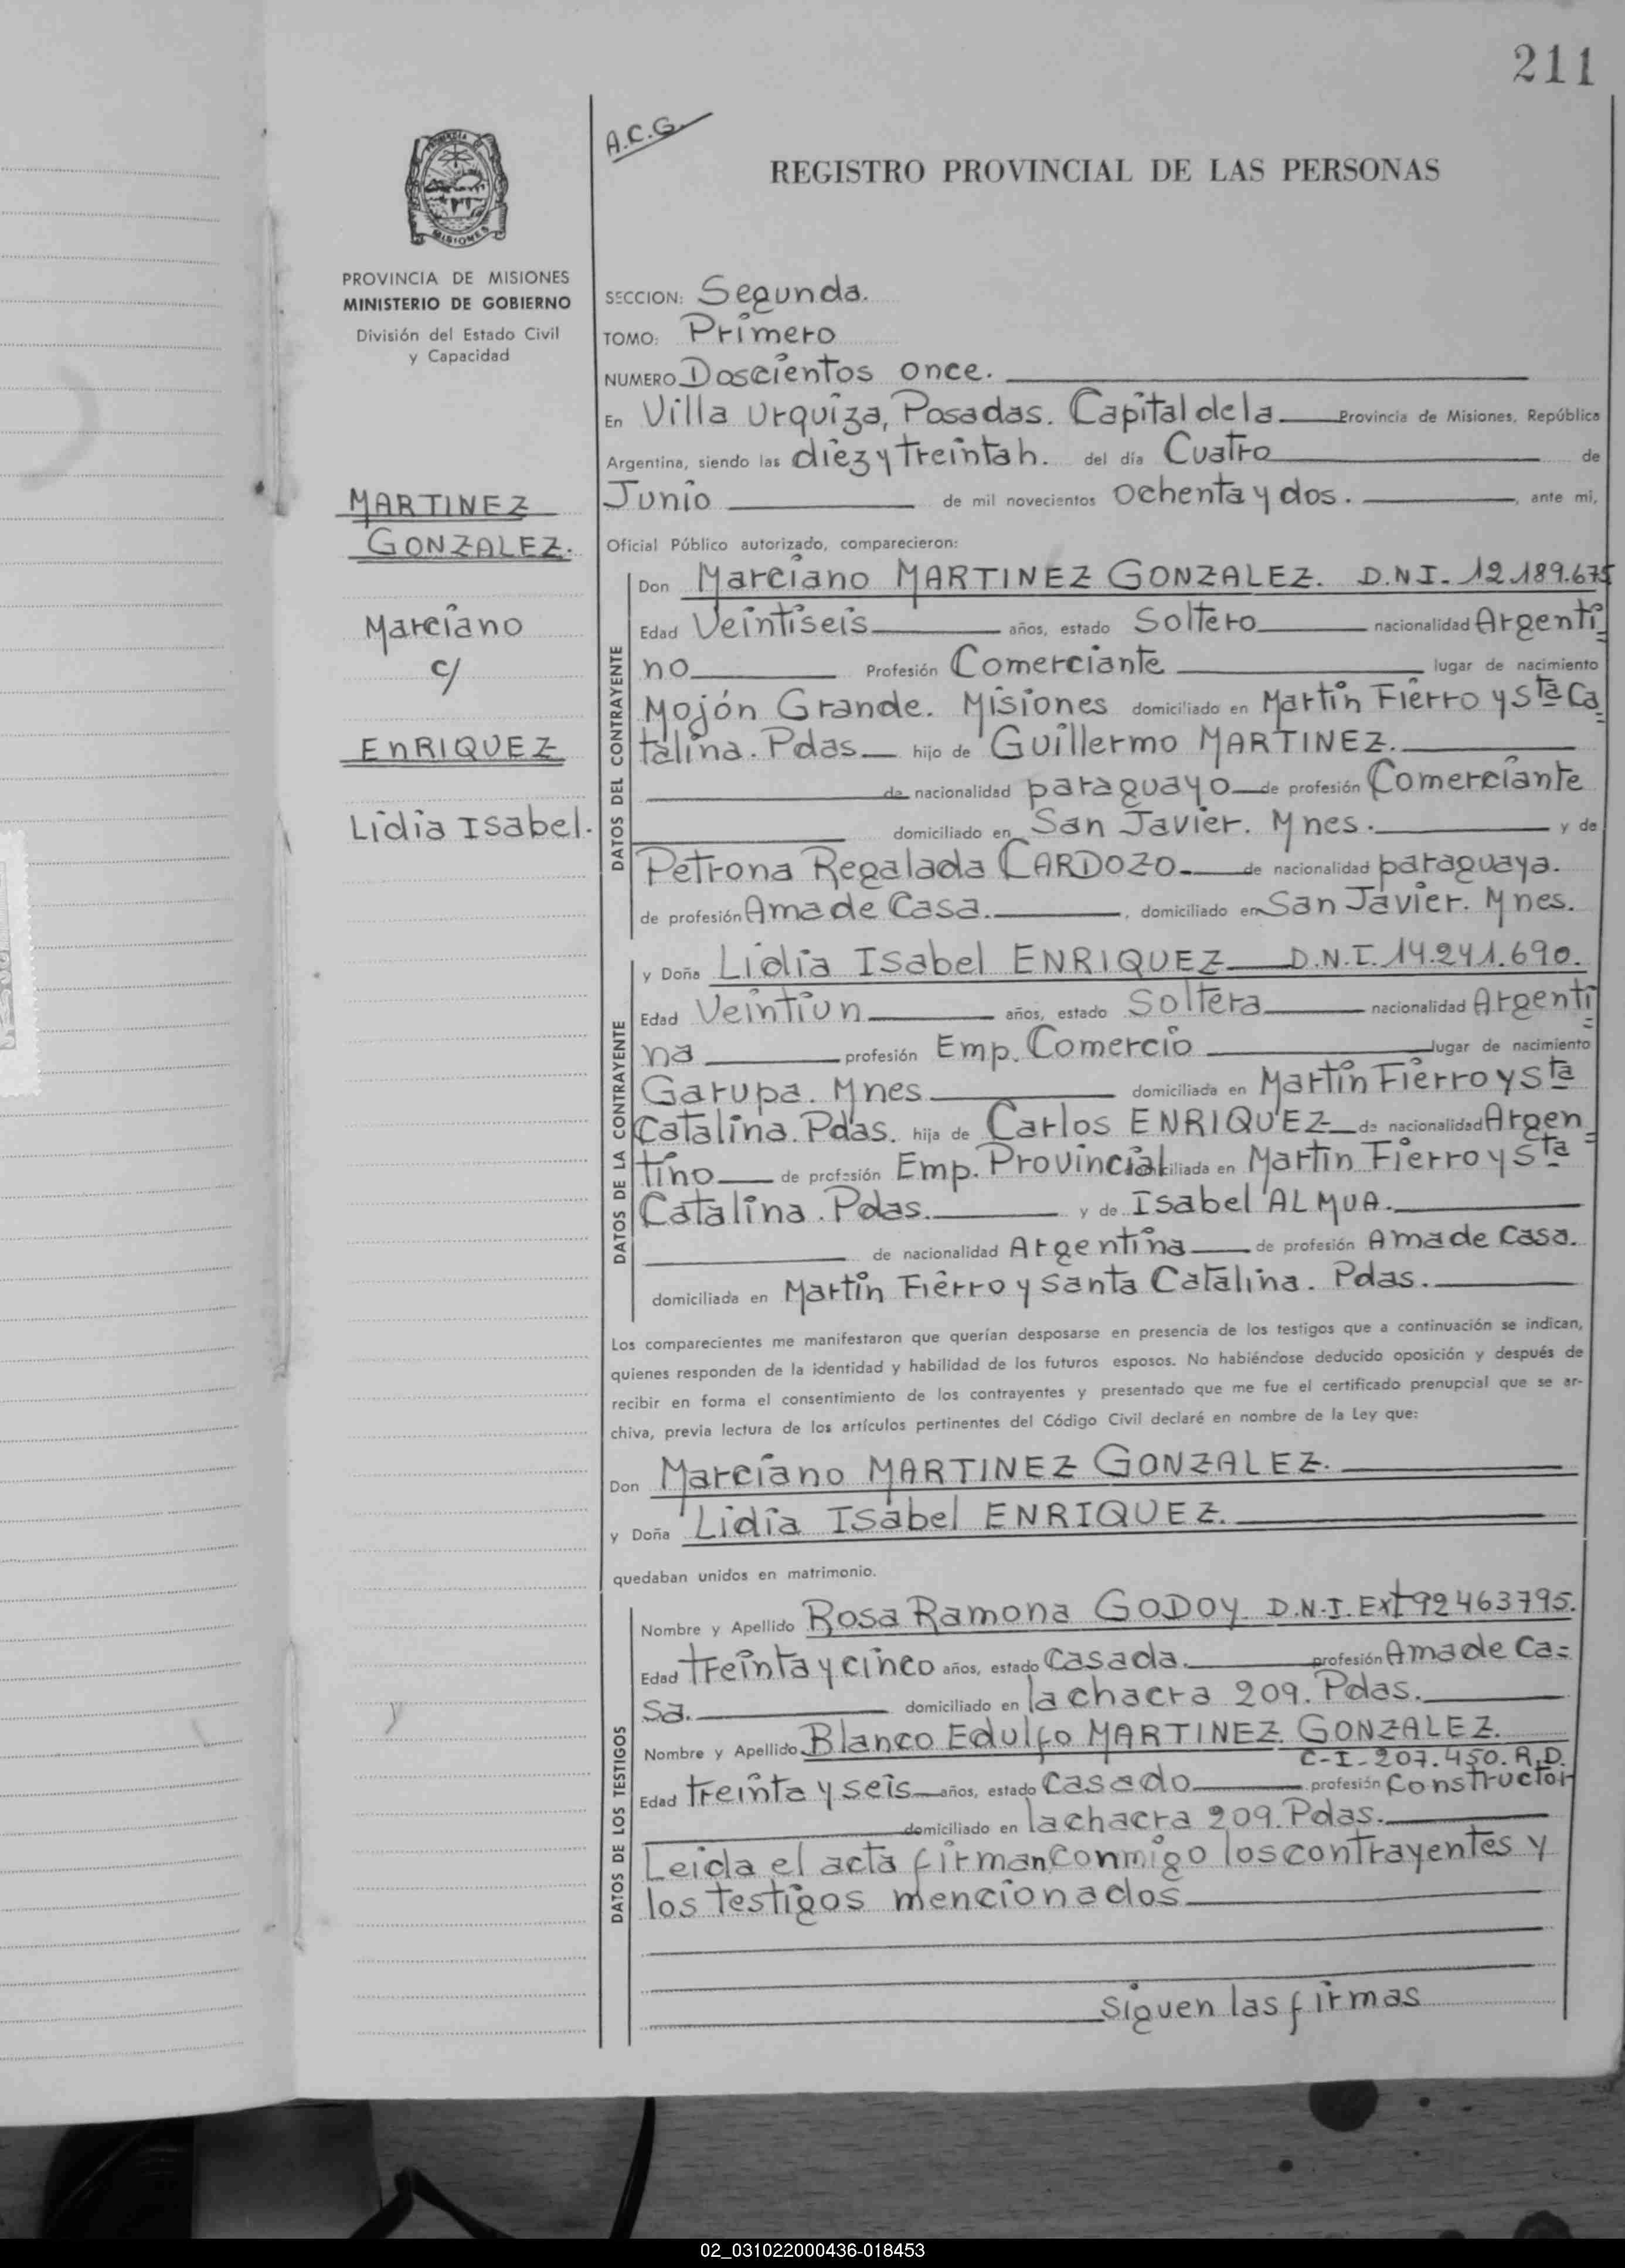 211
A.C.G.
REGISTRO PROVINCIAL DE LAS PERSONAS
PROVINCIA DE MISIONES
MINISTERIO DE GOBIERNO
División del Estado Civil
y Capacidad
MARTINEZ
GONZALEZ.
Marciano
c/
ENRIQUEZ
Lidia Isabel.
SECCION: Segunda.
TOMO: Primero
NUMERO Doscientos once.
En Villa Urquiza, Posadas. Capital de la Provincia de Misiones, República
Argentina, siendo las diez y treinta h. del día Cuatro de
Junio de mil novecientos ochenta y dos. , ante mi,
Oficial Público autorizado, comparecieron:
DATOS DEL CONTRAYENTE
Don Marciano MARTINEZ GONZALEZ. D.N.I. 12.189.675
Edad Veintiseis años, estado Soltero nacionalidad Argenti=
no Profesión Comerciante lugar de nacimiento
Mojón Grande. Misiones domiciliado en Martin Fierro y Sta Ca=
talina. Pdas hijo de Guillermo MARTINEZ.
de nacionalidad paraguayo de profesión Comerciante
domiciliado en San Javier. Mnes. y de
Petrona Regalada CARDOZO. de nacionalidad paraguaya.
de profesión Ama de Casa. , domiciliado en San Javier. Mnes.
DATOS DE LA CONTRAYENTE
y Doña Lidia Isabel ENRIQUEZ D.N.I. 14.241.690.
Edad Veintiun años, estado Soltera nacionalidad Argenti=
na profesión Emp. Comercio lugar de nacimiento
Garupa. Mnes domiciliada en Martin Fierro y Sta
Catalina. Pdas. hija de Carlos ENRIQUEZ de nacionalidad Argen=
tino de profesión Emp. Provincial ciliada en Martin Fierro y Sta
Catalina. Pdas. y de Isabel ALMUA.
de nacionalidad Argentina de profesión Ama de Casa.
domiciliada en Martin Fierro y Santa Catalina. Pdas.
Los comparecientes me manifestaron que querían desposarse en presencia de los testigos que a continuación se indican,
quienes responden de la identidad y habilidad de los futuros esposos. No habiéndose deducido oposición y después de
recibir en forma el consentimiento de los contrayentes y presentado que me fue el certificado prenupcial que se ar-
chiva, previa lectura de los artículos pertinentes del Código Civil declaré en nombre de la Ley que:
Don Marciano MARTINEZ GONZALEZ.
y Doña Lidia Isabel ENRIQUEZ.
quedaban unidos en matrimonio.
DATOS DE LOS TESTIGOS
Nombre y Apellido Rosa Ramona GODOY. D.N.I. Ext 92463795.
Edad treinta y cinco años, estado Casada. profesión Ama de Ca=
sa. domiciliado en la chacra 209. Pdas.
Nombre y Apellido Blanco Edulfo MARTINEZ GONZALEZ.
C-I-207.450.R.D.
Edad treinta y seis años, estado Casado profesión Constructor
domiciliado en la chacra 209. Pdas.
Leida el acta firman conmigo los contrayentes y
los testigos mencionados
siguen las firmas
02_031022000436-018453